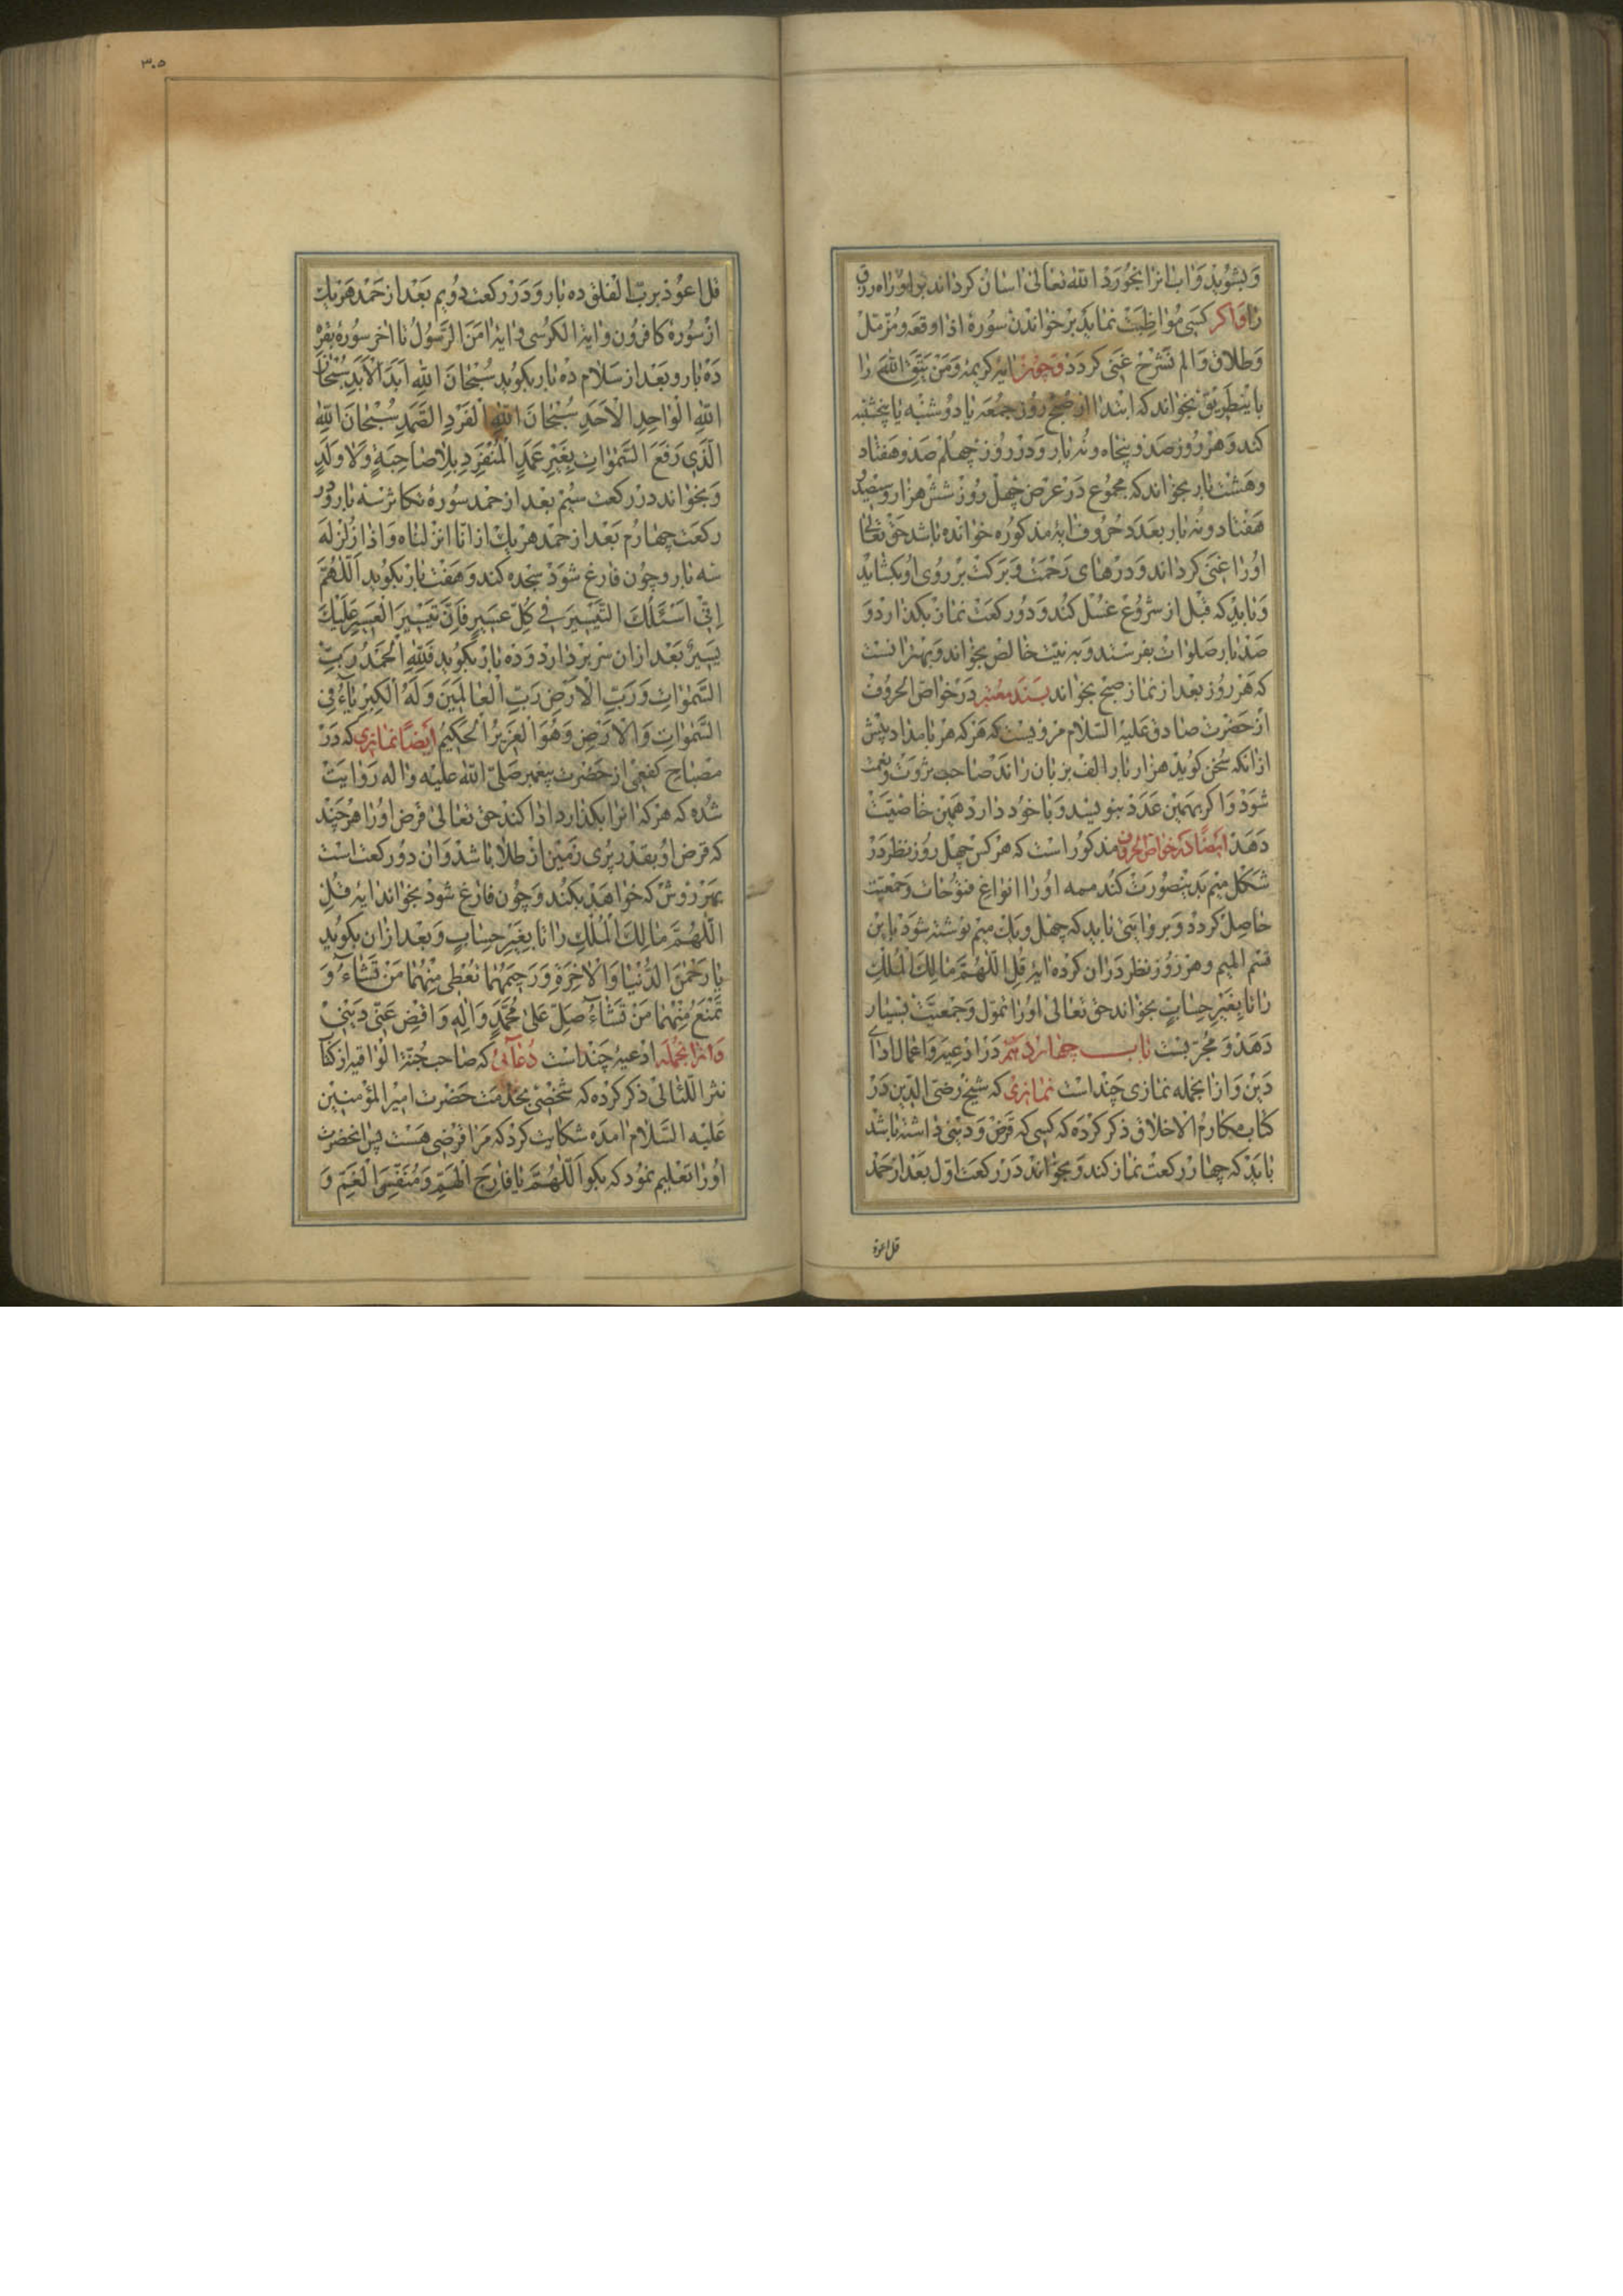 و بشوید و اب انرا بخورد الله تعالی اسان کرداند بر او راه رزق
را واکر کسی مواظبت نماید بر خواندن سورهٔ اذا وقعه و مزمل
و طلاق و الم نشرح غنی کردد و چون ایهٔ کریمهٔ ومن یتق الله را
باینطریق بخواند که ابتدا از صبح روز جمعه یا دوشنبه یا پنجشنبه
کند و هر روز صد و پنجاه و نه بار و در روز چهلم صد و هفتاد
و هشت بار بخواند که مجموع در عرض چهل روز شش هزار و سیصد و
هفتاد و نه بار بعدد حروف ایهٔ مذکوره خوانده باشد حق تعالی
اورا غنی کرداند و درهای رحمت و برکت بر روی او بکشاید
و باید که قبل از شروع غسل کند و دو رکعت نماز بکذارد و
صد بار صلوات بفرستد و به نیت خالص بخواند و بهتر انست
که هر روز بعد از نماز صبح بخواند بسند معتبر در خواص الحروف
از حضرت صادق علیه السلام مرویست که هر که هر بامداد پیش
از انکه سخن کوید هزار بار الف بر زبان راند صاحب ثروت و نعمت
شود و اکر بهمین عدد بنویسد و با خود دارد همین خاصیت
دهد ایضا در خواص الحروف مذکور است که هر کس چهل روز نظر در
شکل میم بدینصورت کند مـه اورا انواع فتوحات و جمعیت
حاصل کردد و بروایتی باید که چهل و یک میم نوشته شود باین
قسم المیم و هر روز نظر در ان کرده ایهٔ قل اللهم مالک الملک
را تا بغیر حساب بخواند حق تعالی اورا تمول و جمعیت بسیار
دهد و مجربست باب چهاردهم در ادعیه و اعمال ادای
دین و از انجمله نمازی چند است نمازی که شیخ رضی الدین در
کتاب مکارم الاخلاق ذکر کرده که کسی که قرض و دینی داشته باشد
باید که چهار رکعت نماز کند و بخواند در رکعت اول بعد از حمد
قل اعوذ
۳۰۵
قل اعوذ برب الفلق ده بار و در رکعت دویم بعد از حمد هر یک
از سورهٔ کافرون و ایة الکرسی و ایهٔ امن الرسول تا اخر سورهٔ بقره
ده بار و بعد از سلام ده بار بکوید سُبْحانَ اللهِ اَبَدَ الْاَبَدِ سُبْحانَ
اللهِ الْواحِدِ الْاَحَدِ سُبْحانَ اللهِ الْفَرْدِ الصَّمَدِ سُبْحانَ اللهِ
الَّذی رَفَعَ السَّمٰواتِ بِغَیْرِ عَمَدٍ الْمُنْفَرِدِ بِلا صاحِبَةٍ وَلا وَلَدٍ
و بخواند در رکعت سیم بعد از حمد سورهٔ تکاثر سه بار و در
رکعت چهارم بعد از حمد هر یک از انا انزلناه و اذا زلزله
سه بار و چون فارغ شود سجده کند و هفت بار بکوید اَللّهُمَّ
اِنّی اَسْئَلُکَ التَّیْسیرَ فی کُلِّ عَسیرٍ فَاِنَّ تَیْسیرَ الْعَسیرِ عَلَیْکَ
یَسیرٌ بعد از ان سر بر دارد و ده بار بکوید فَلِلّهِ الْحَمْدُ رَبِّ
السَّمٰواتِ وَرَبِّ الْاَرْضِ رَبِّ الْعالَمینَ وَلَهُ الْکِبْرِیآءُ فِی
السَّمٰواتِ وَالْاَرْضِ وَهُوَ الْعَزیزُ الْحَکیمُ ایضاً نمازی که در
مصباح کفعمی از حضرت پیغمبر صلی الله علیه و اله روایت
شده که هر که انرا بکذارد ادا کند حق تعالی قرض اورا هر چند
که قرض او بقدر پری زمین از طلا باشد و ان دو رکعت است
بهر روش که خواهد بکند و چون فارغ شود بخواند ایهٔ قُلِ
اللّهُمَّ مالِکَ الْمُلْکِ را تا بِغَیْرِ حِسابٍ و بعد از ان بکوید
یا رَحْمٰنَ الدُّنْیا وَالْاخِرَةِ وَرَحیمَهُما تُعْطی مِنْهُما مَنْ تَشآءُ وَ
تَمْنَعُ مِنْهُما مَنْ تَشآءُ صَلِّ عَلی مُحَمَّدٍ وَالِهِ وَاقْضِ عَنّی دَیْنی
و از انجمله ادعیهٔ چند است دعائی که صاحب جنة الواقیه از کتاب
نثر اللئالی ذکر کرده که شخصی بخدمت حضرت امیر المؤمنین
علیه السلام امده شکایت کرد که مرا قرضی هست پس انحضرت
اورا تعلیم نمود که بکو اَللّهُمَّ یا فارِجَ الْهَمِّ وَمُنَفِّسَ الْغَمِّ وَ